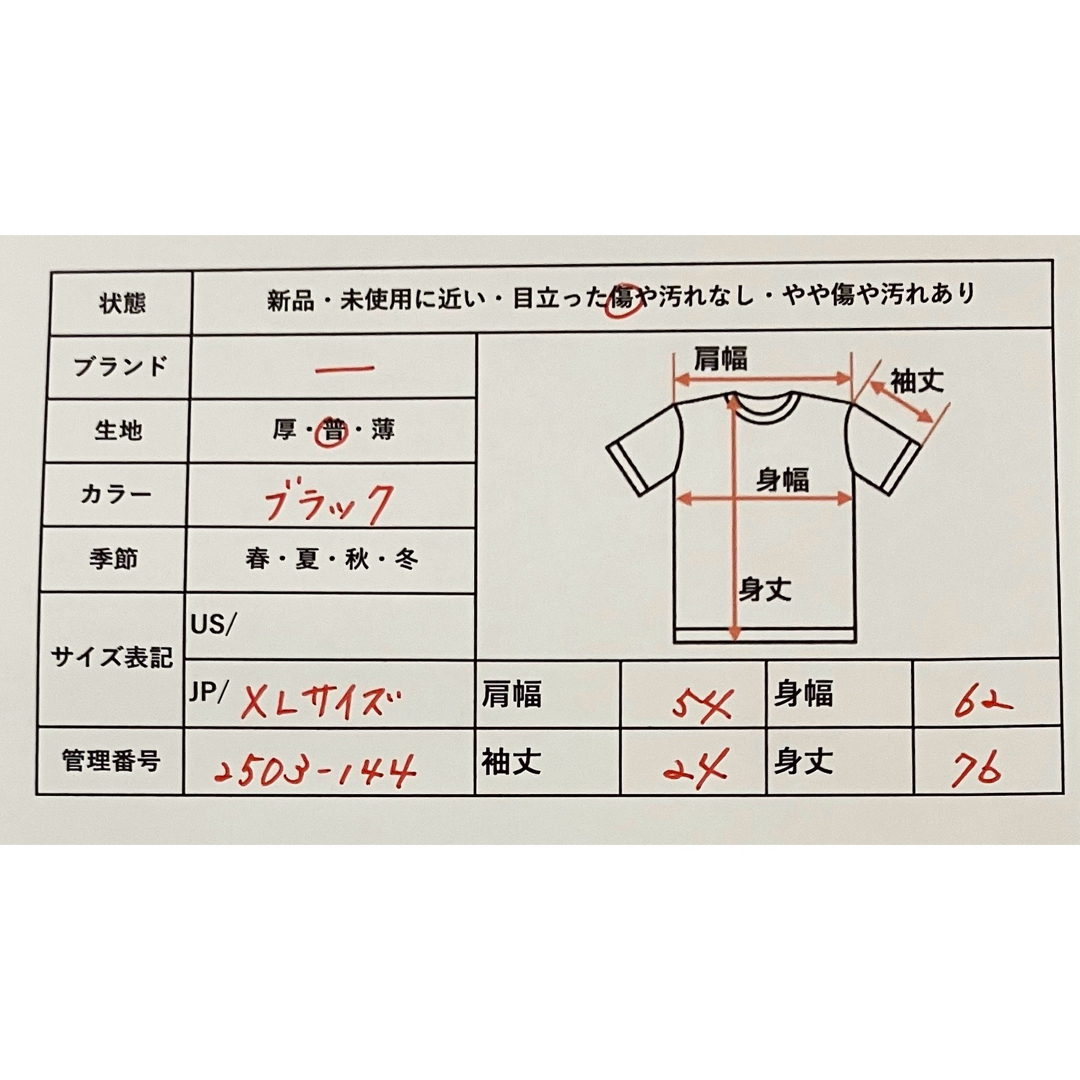 状態 新品・未使用に近い・目立った傷や汚れなし・やや傷や汚れあり
ブランド ー
生地 厚・普・薄
カラー ブラック
季節 春・夏・秋・冬
肩幅
袖丈
身幅
身丈
サイズ表記 US/
JP/ XLサイズ 肩幅 54 身幅 62
管理番号 2503-144 袖丈 24 身丈 76